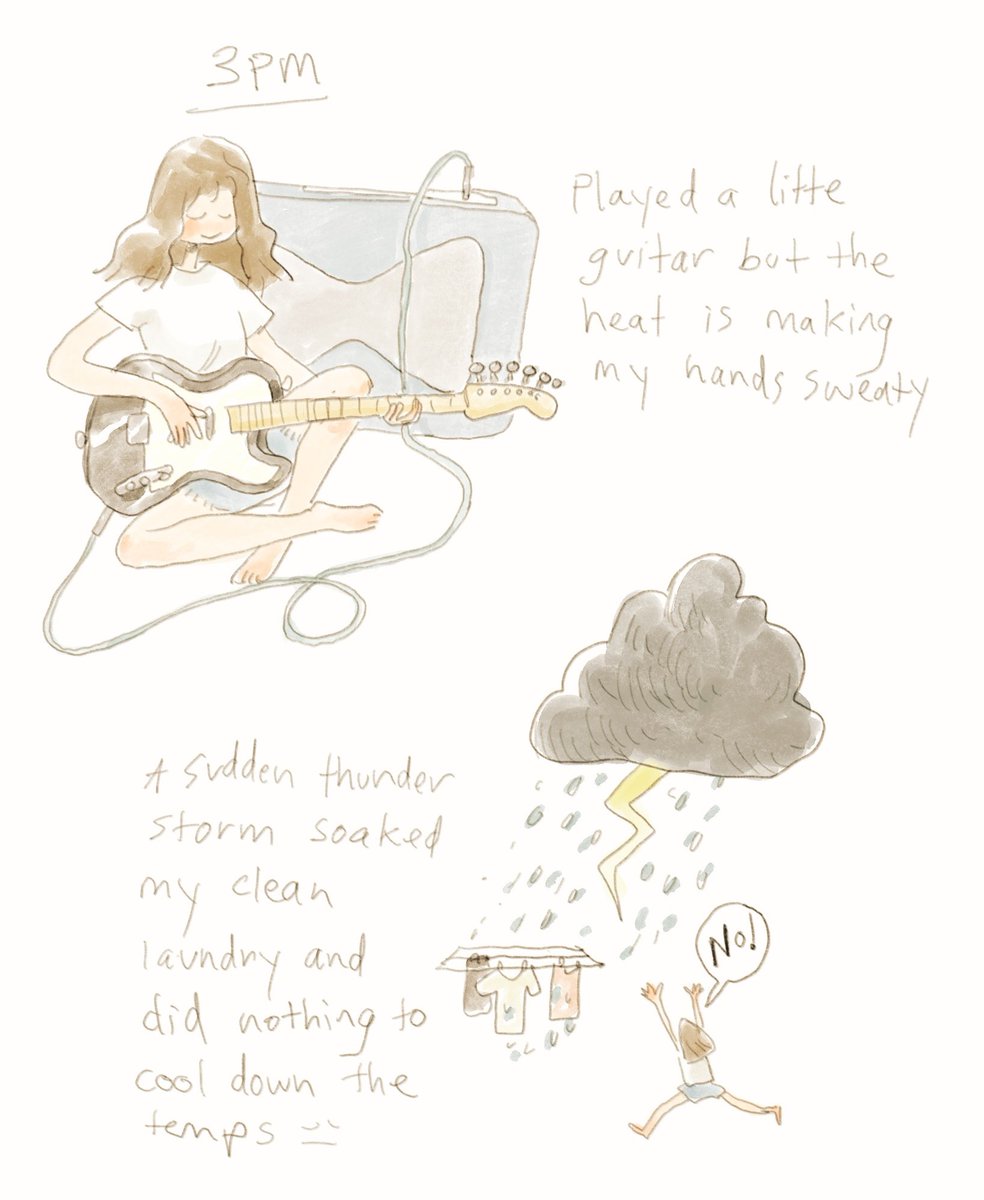 3PM
Played a litte
guitar but the
heat is making
my hands sweaty
A sudden thunder
storm soaked
my clean
laundry and
did nothing to
cool down the
temps
No!